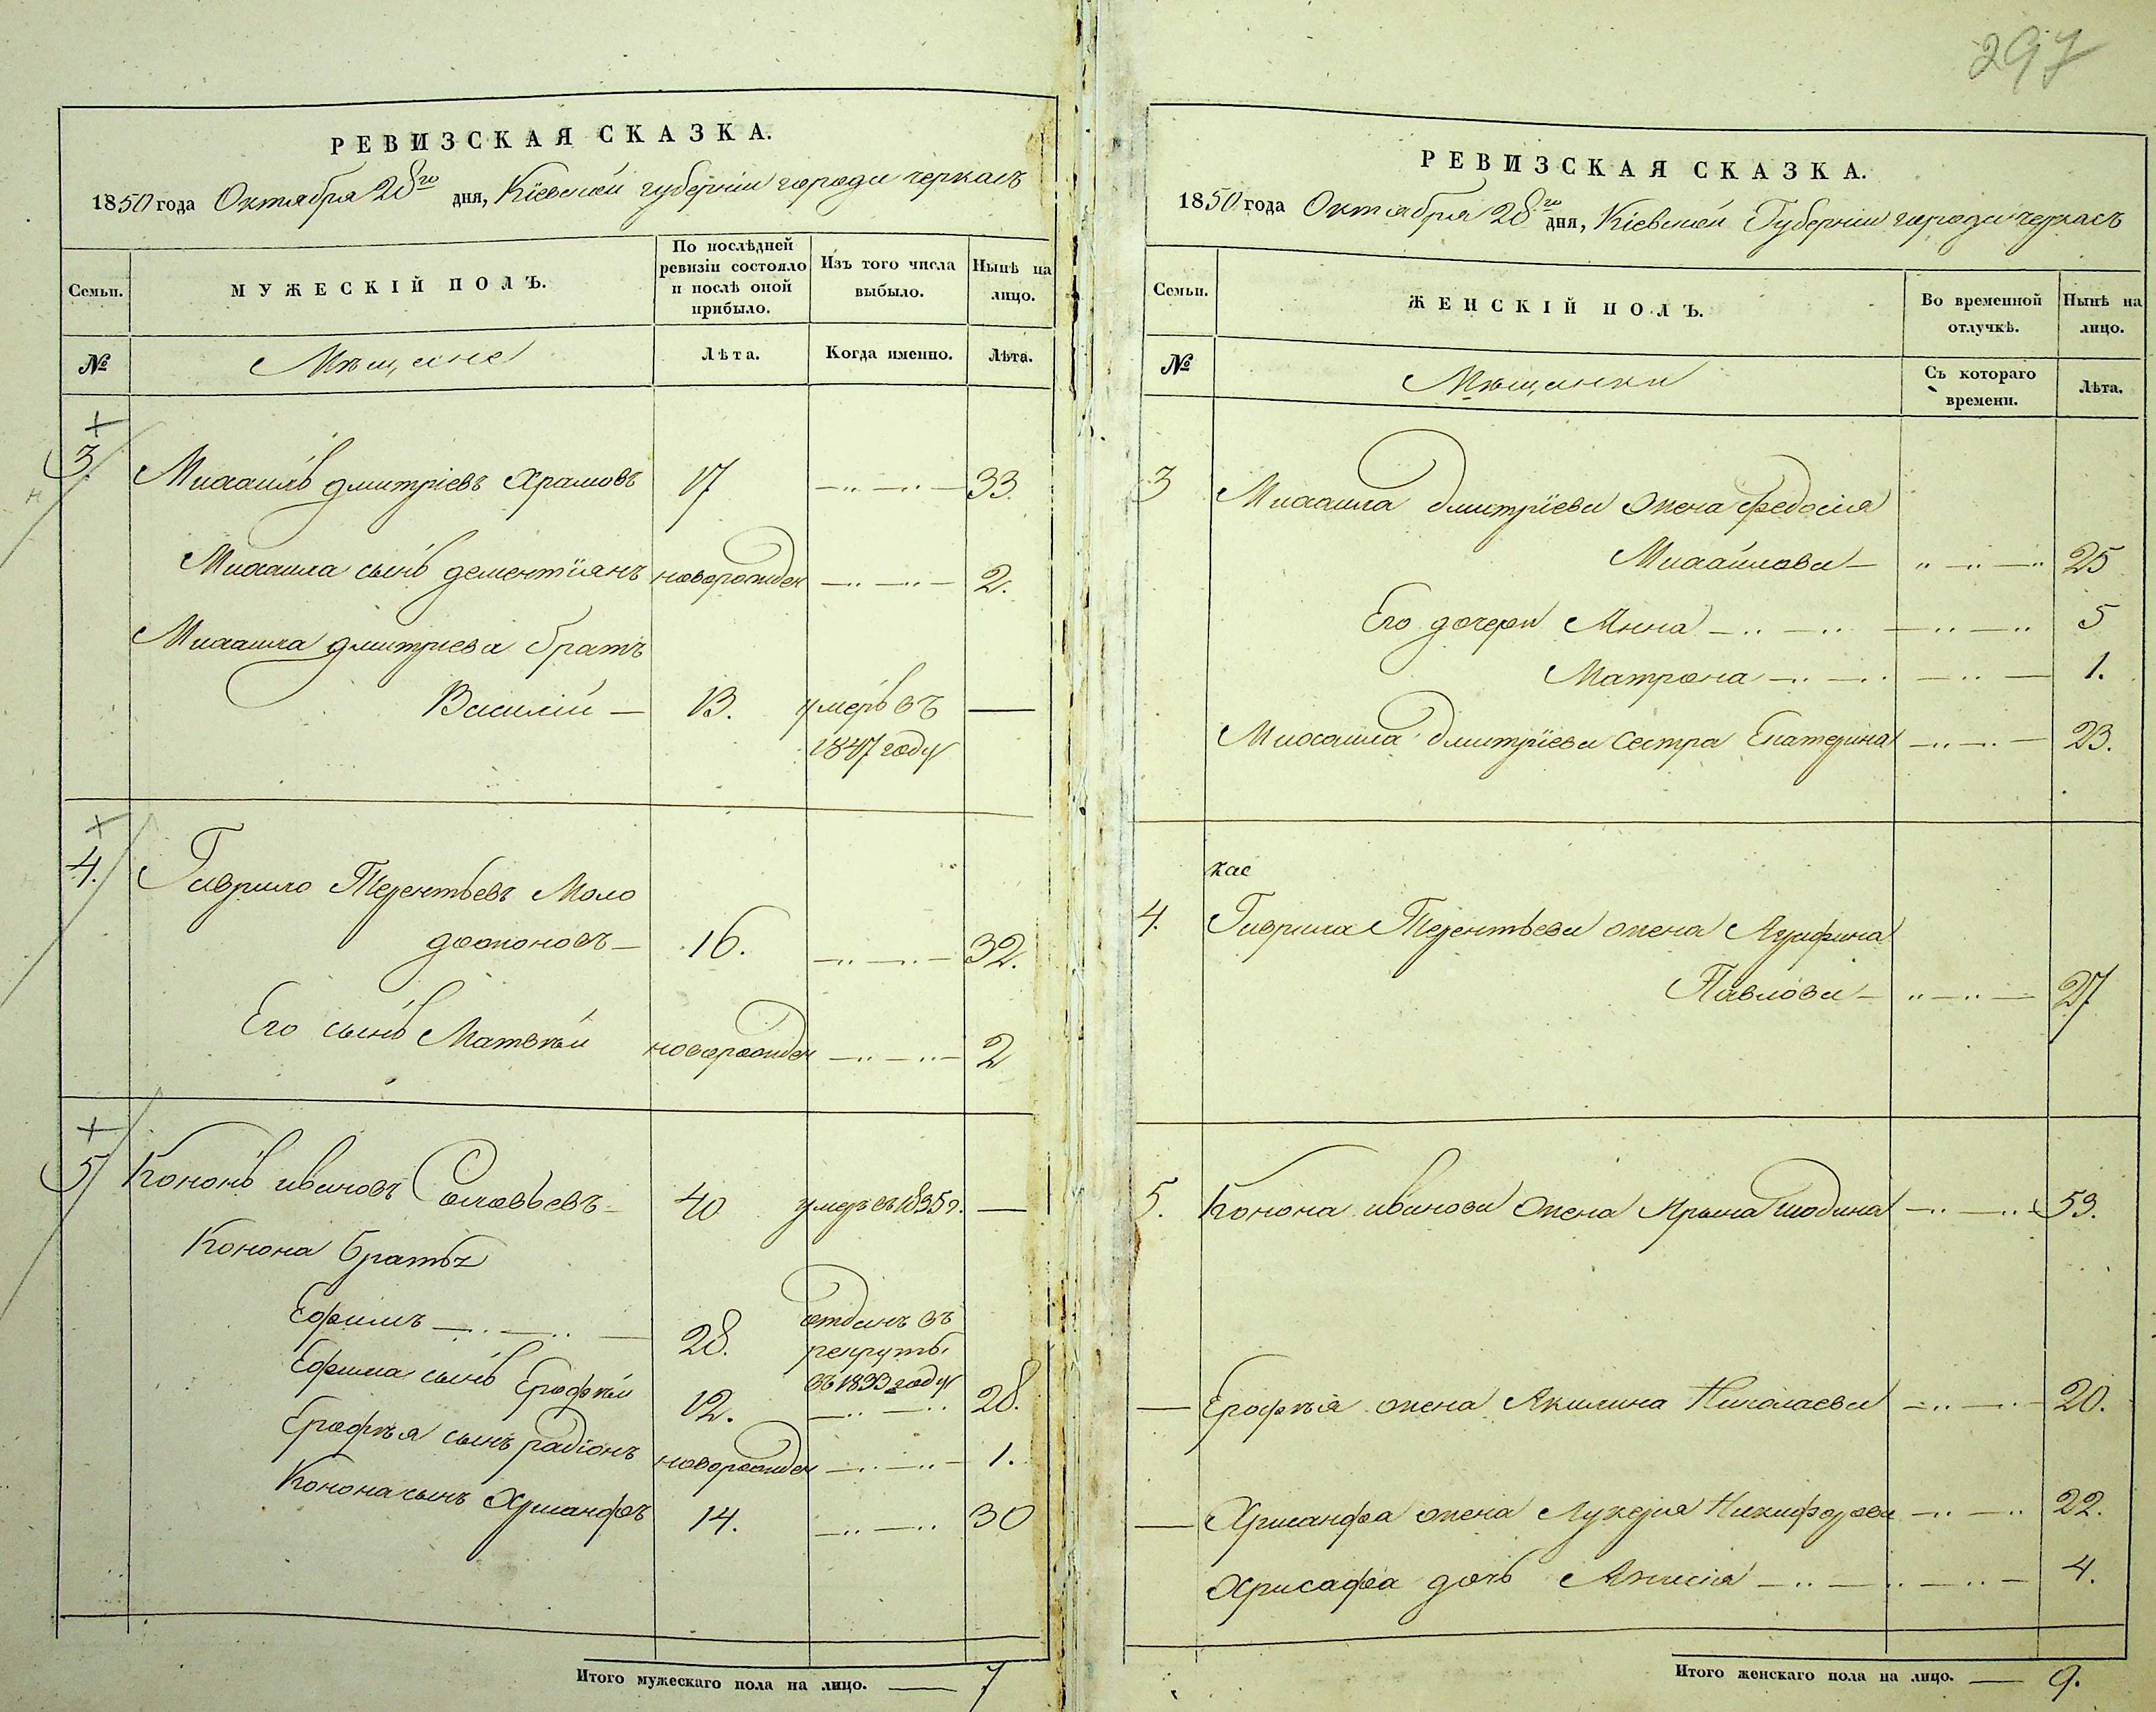 297
РЕВИЗСКАЯ СКАЗКА.
1850 года Октября 28го дня, Кіевской губерніи города черкасъ
Семьи.
МУЖЕСКІЙ ПОЛЪ.
По послѣдней ревизіи состояло и послѣ оной прибыло.
Изъ того числа выбыло.
Нынѣ на лицо.
№
Мѣщане
Лѣта.
Когда именно.
Лѣта.
3. Михаилъ дмитріевъ Храмовъ 17 33.
Михаила сынъ дементіянъ новорожден 2.
Михаила дмитріева братъ
Василій — 13. умеръ въ —
1847 году
4. Гаврило Терентьевъ Моло
дожоновъ — 16. 32.
Его сынъ Матвѣй новорожден 2
5 Кононъ ивановъ Соловьевъ — 40 умеръ въ 1835 г. —
Конона братья
Ефимъ 28. отданъ въ
рекруты
въ 1833 году
Ефима сынъ Ерофѣй 12. 28.
Ерофѣя сынъ радіонъ новорожден 1.
Конона сынъ Хрисанфъ 14. 30
Итого мужескаго пола на лицо. — 7
РЕВИЗСКАЯ СКАЗКА.
1850 года Октября 28го дня, Кіевской Губерніи города черкасъ
Семьи.
ЖЕНСКІЙ ПОЛЪ.
Во временной отлучкѣ.
Нынѣ на лицо.
№
Мѣщанки
Съ котораго времени.
Лѣта.
3 Михаила дмитріева жена федосія
Михайлова — 25
Его дочери Анна 5
Матрона 1.
Михаила дмитріева сестра Екатерина 23.
кас
4. Гаврила Терентьева жена Агафина
Павлова — 27
5. Конона иванова жена Арына 53.
— Ерофѣя жена Акилина Николаева 20.
— Хрисанфа жена Лукерія Никифорова 22.
Хрисафа дочь Анисія 4.
Итого женскаго пола на лицо. — 9.